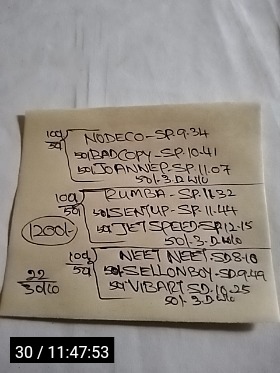 100/ NODECO-SP.9.34
50/
50/ BADCOPY-SP.10-41
50/ JOANNIER-SP.11.07
50/-3.D W10
100/ RUMBA-SP.11.32
50/
50/ SENTUP-SP.11.44
1200/-
50/ JETSPEED-SP.12-15
50/-3.D W10
100/ NEET NEET-SD8-10
50/
50/ SELLONBOY-SD9.49
22
50/ VIBART-SD.10.25
50/-3.D W10
30/10
30 / 11:47:53